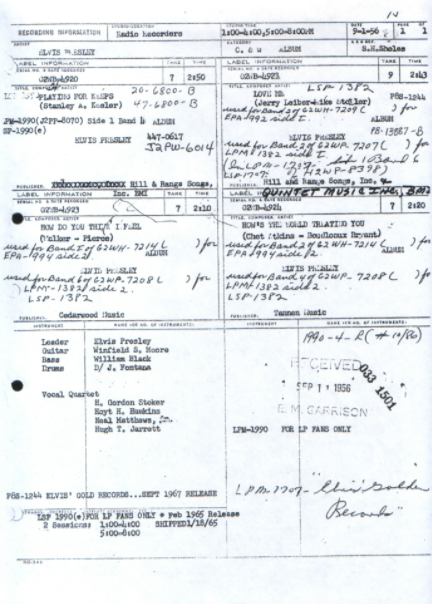 RECORDING INFORMATION
Radio Recorders
1:00-4:00,5:00-8:00PM
9-1-56
PAGE 1 OF 1
ELVIS PRESLEY
C. & W ALBUM
S.H.Sholes
LABEL INFORMATION TAKE TIME
G2WB-4920 7 2:50
PLAYING FOR KEEPS 20-6800-B
(Stanley A. Kesler) 47-6800-B
LPM-1990(J2PP-8070) Side 1 Band 4 ALBUM
SP-1990(e)
ELVIS PRESLEY 447-0617
J2PW-6014
PUBLISHER: Hill & Range Songs, Inc. BMI
LABEL INFORMATION TAKE TIME
G2WB-4921 9 2:43
LSP-1382
LOVE ME P8S-1244
(Jerry Leiber-Mike Stoller)
used for Band 2 of 62WH-7209 ( ) for
EPA-992 side I. ALBUM
ELVIS PRESLEY
used for Band 2 of 62WP-7207 ( ) for
LPM-1382 side I
PUBLISHER: Hill and Range Songs, Inc.
QUINTET MUSIC INC, BMI
LABEL INFORMATION TAKE TIME
G2WB-4923 7 2:10
HOW DO YOU THINK I FEEL
(Walker - Pierce)
used for Band 1 of 62WH-7214 ( ) for
EPA-994 side 2. ALBUM
ELVIS PRESLEY
used for Band 6 of 62WP-7208 ( ) for
LPM-1382 side 2.
LSP-1382
PUBLISHER: Cedarwood Music
LABEL INFORMATION TAKE TIME
7 2:20
HOW'S THE WORLD TREATING YOU
(Chet Atkins - Boudleaux Bryant)
used for Band 2 of 62WH-7214 ( ) for
EPA-994 side 2. ALBUM
ELVIS PRESLEY
used for Band 4 of 62WP-7208 ( ) for
LPM-1382 side 2.
LSP-1382
PUBLISHER: Tannen Music
INSTRUMENT NAME (OR NO. OF INSTRUMENTS)
INSTRUMENT NAME (OR NO. OF INSTRUMENTS)
Leader Elvis Presley
Guitar Winfield S. Moore
Bass William Black
Drums D/ J. Fontana
Vocal Quartet
H. Gordon Stoker
Hoyt H. Hawkins
Neal Matthews, Jr.
Hugh T. Jarrett
RECEIVED
SEP 11 1956
E. M. GARRISON
033 1501
LPM-1990 FOR LP FANS ONLY
P8S-1244 ELVIS' GOLD RECORDS...SEPT 1967 RELEASE
LPM-1707 - "Elvis' Golden
Records"
LSP 1990(e)FOR LP FANS ONLY * Feb 1965 Release
2 Sessions: 1:00-4:00 SHIPPED1/18/65
5:00-8:00